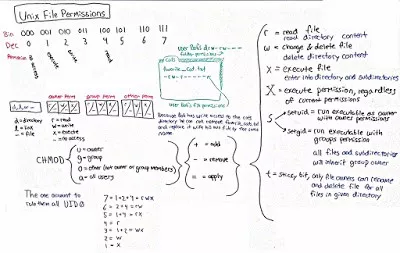 Unix File Permissions
Bin 000 001 010 011 100 101 110 111
Dec 0 1 2 3 4 5 6 7
no access
execute
write
read
user
cat
favorite_cat.txt
owner perm group perm other perm
d, l, -
d = directory r = read
l = link w = write
- = file x = execute
- = no access
because Bob has write access to the cats
directory he can
and replace it with his own file by the same
name.
CHMOD
u = owner
g = group
o = other (not owner or group members)
a = all users
+ = add
- = remove
= = apply
The one account to
rule them all UID 0
7 = 1+2+4 = rwx
6 = 2+4 = rw
5 = 1+4 = rx
4 = r
3 = 1+2 = wx
2 = w
1 = x
r = read file
read directory content
w = change & delete file
delete directory content
x = execute file
enter into directory and subdirectories
X = execute permission, regardless
of current permissions
s
setuid = run executable as owner
with owners permission
setgid = run executable with
groups permission
all files and subdirectories
will inherit group owner
t = sticky bit, only file owners can rename
and delete file for all
files in given directory